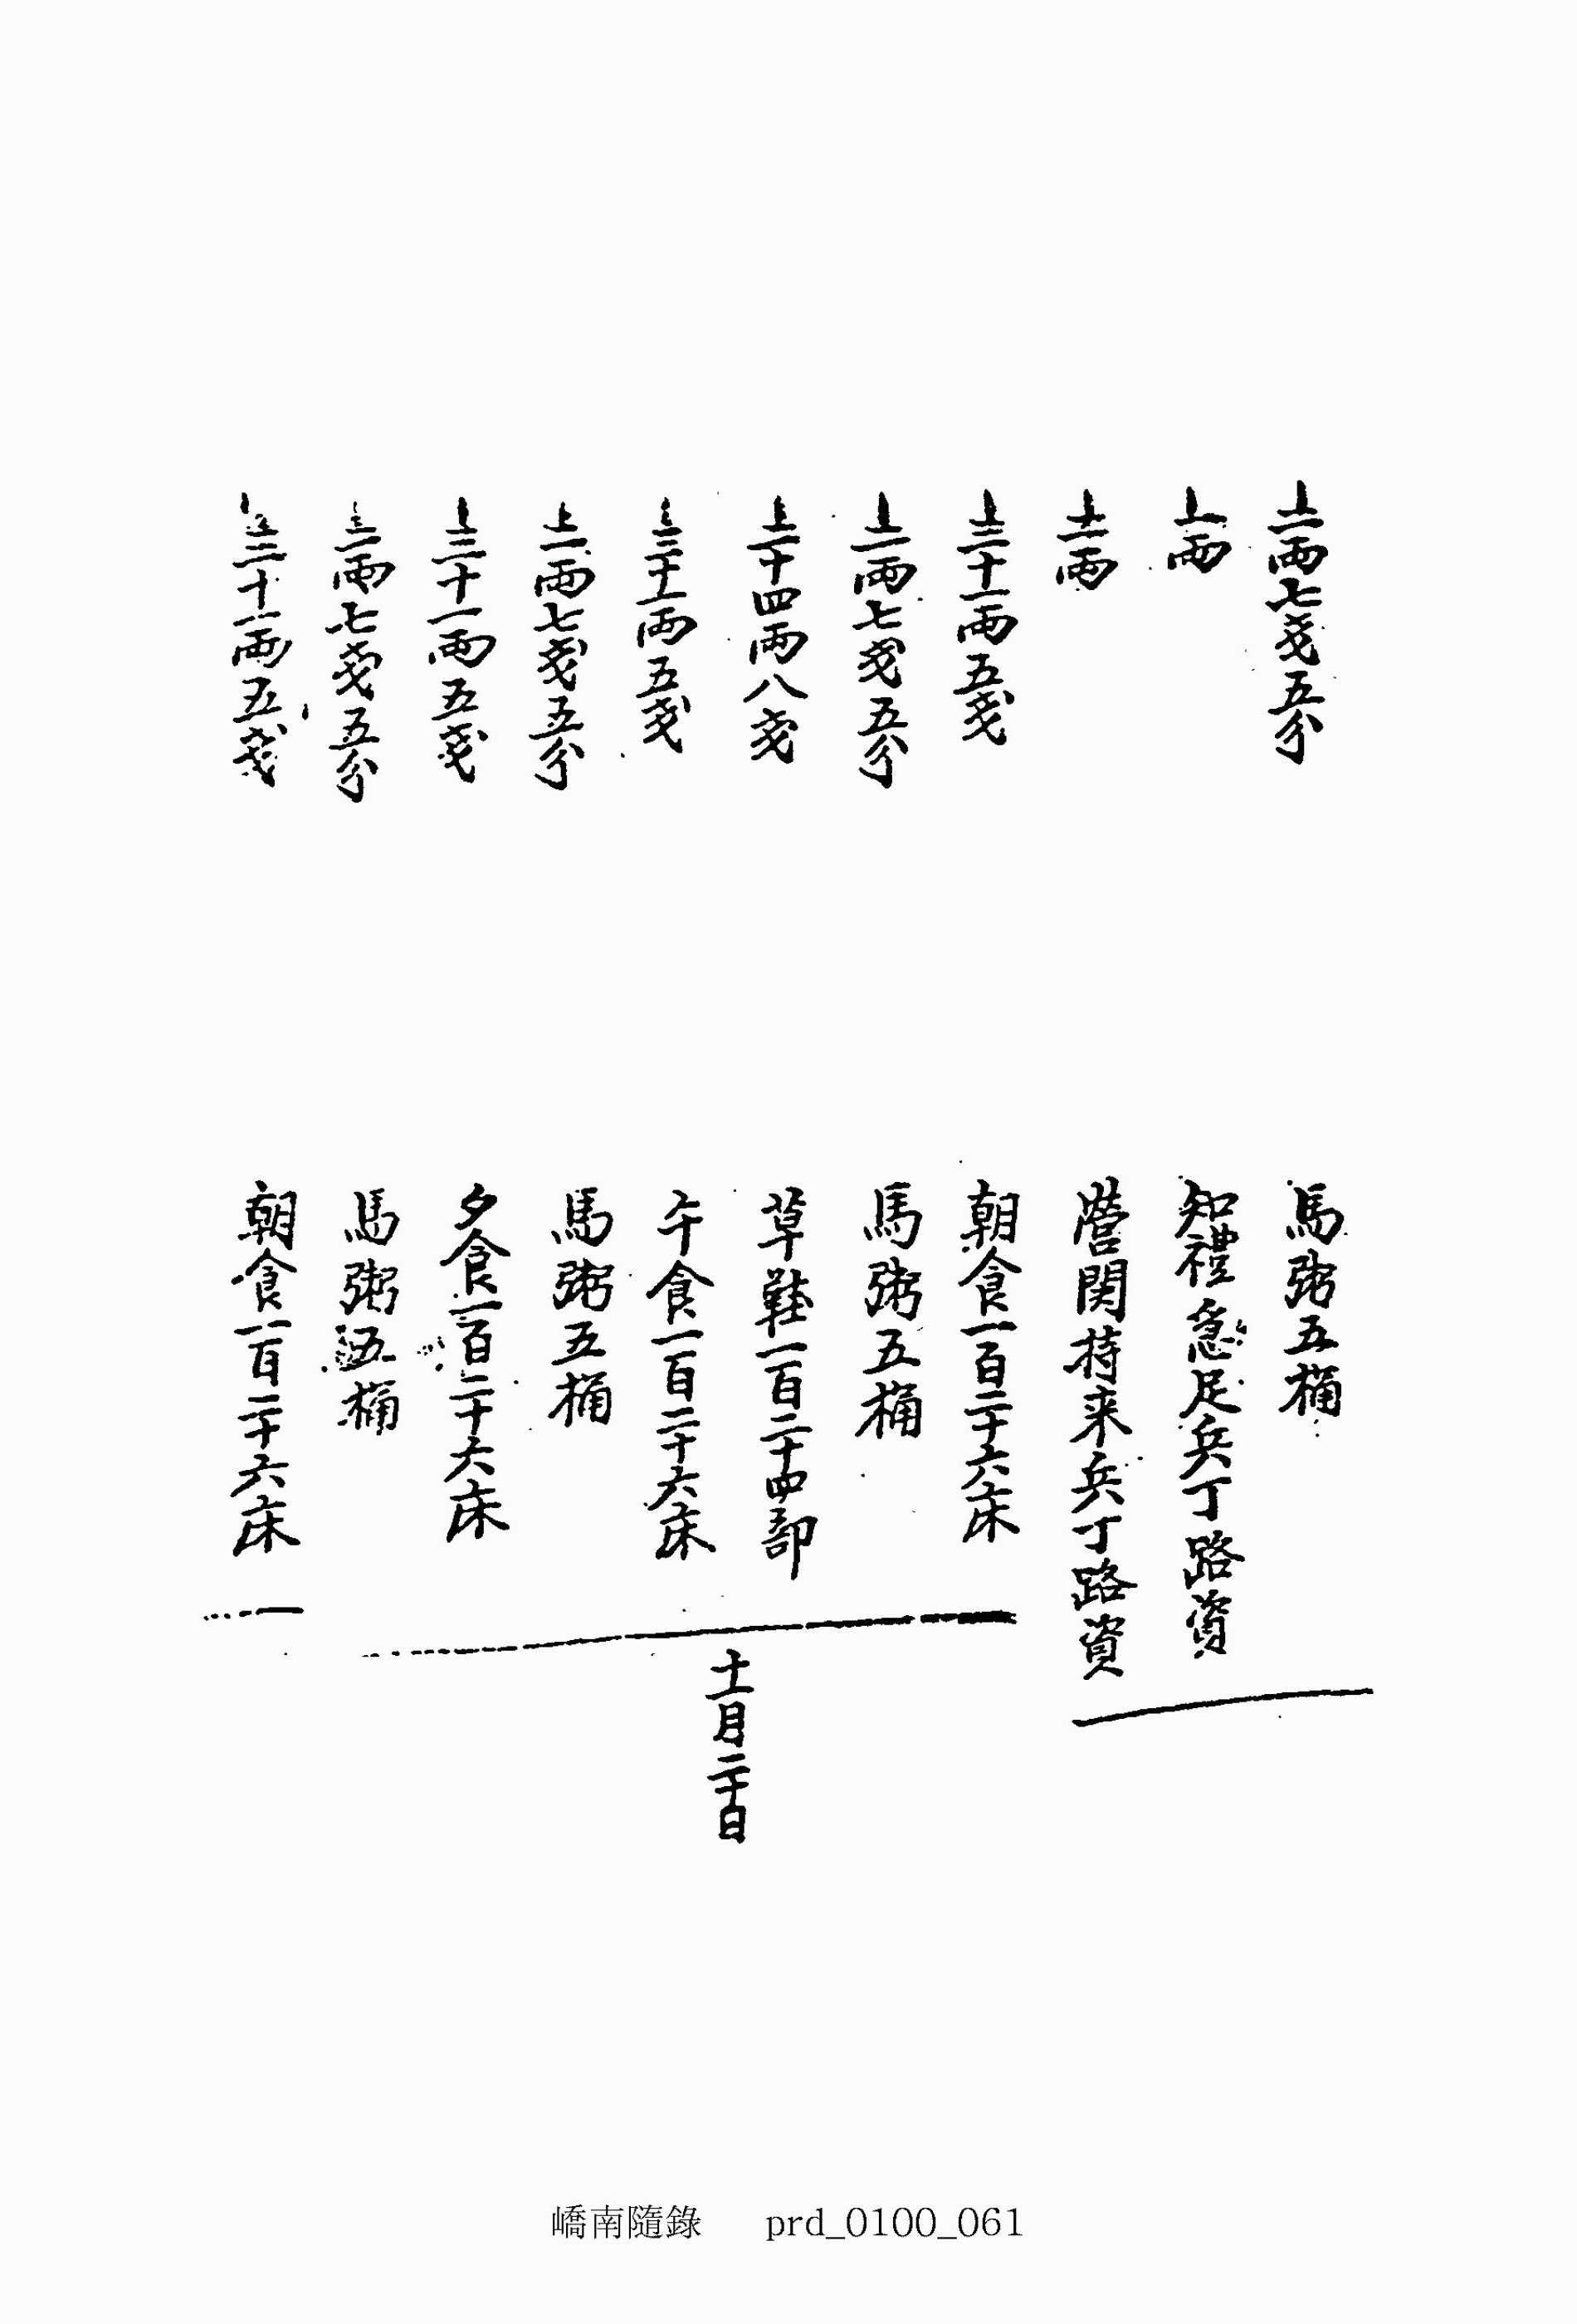 上一兩七戔五分 馬粥五桶
上一兩 知禮急足兵丁路資
上一兩 營関持来兵丁路資
上三十一兩五戔 朝食一百二十六床
上一兩七戔五分 馬粥五桶
上十四兩八戔 草鞋一百二十四部
上三十一兩五戔 午食一百二十六床
上一兩七戔五分 馬粥五桶
上三十一兩五戔 夕食一百二十六床
上一兩七戔五分 馬粥五桶
上三十一兩五戔 朝食一百二十六床
十一月二十日
嶠南隨錄 prd_0100_061